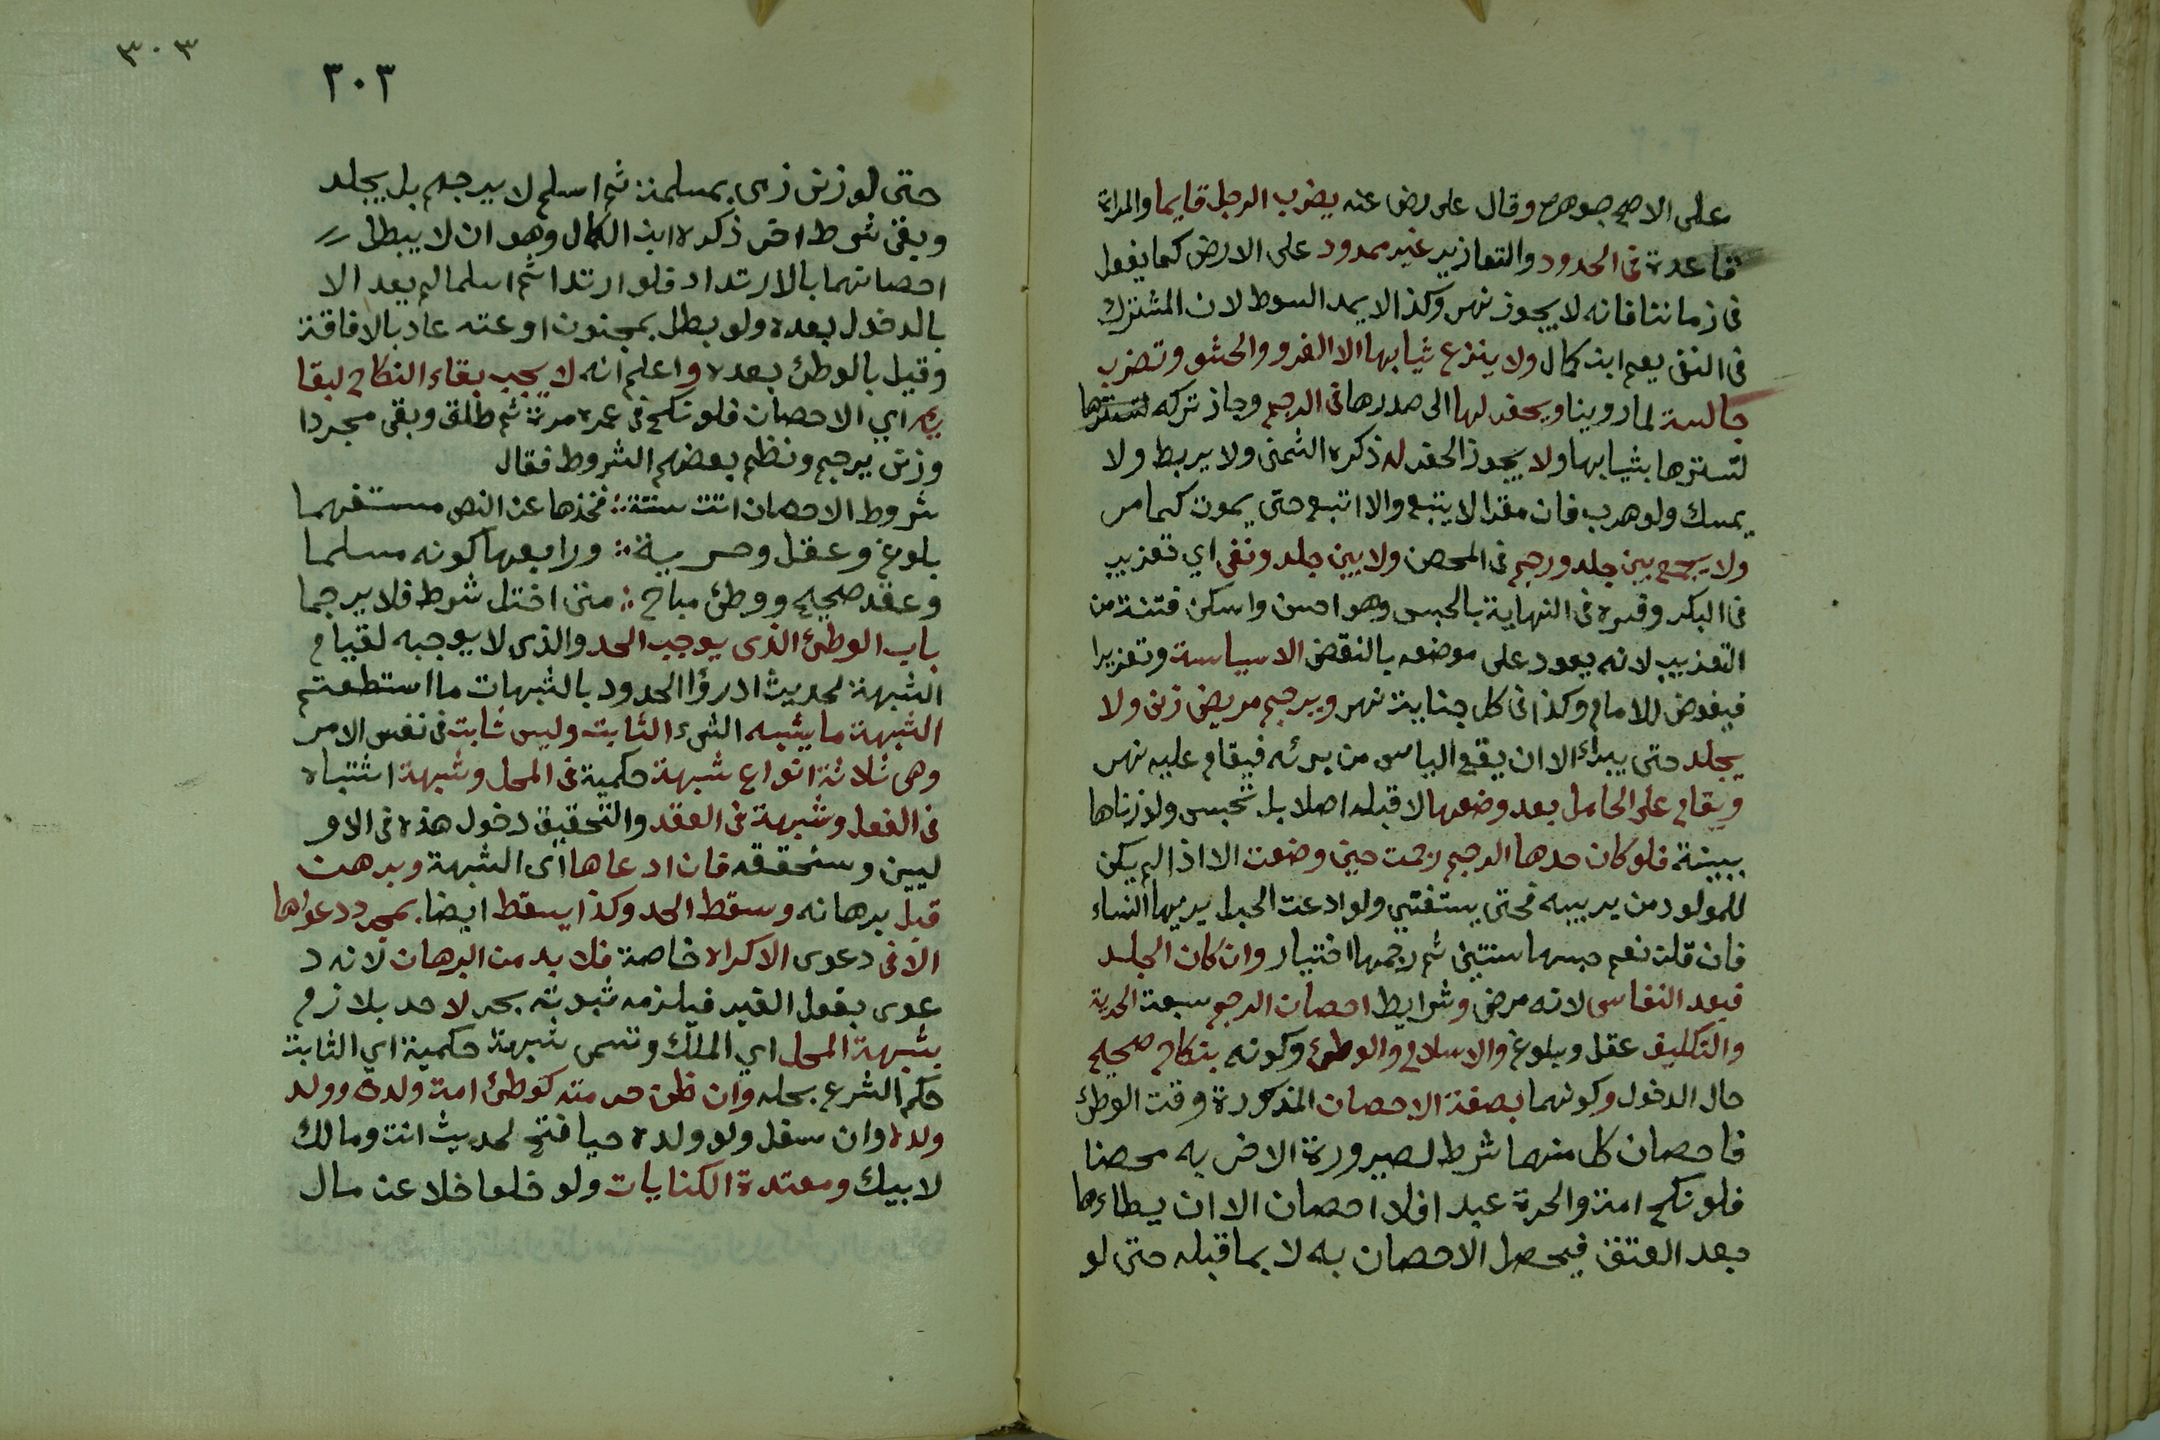 على الاصح جوهره وقال على رضى عنه يضرب الرجل قايما والمراة
قاعدة فى الحدود والتعازير غير ممدود على الارض كما يفعل
فى زماننا فانه لا يجوز نهر وكذا لا يمد السوط لان المشترك
فى النفى يعم ابن كمال ولا ينزع ثيابها الا الفرو والحشو وتضرب
جالسة لما روينا ويحفر لها الى صدرها فى الرجم وجاز تركه
لتسترها بثيابها ولا يجوز الحفر له ذكره الشمنى ولا يربط ولا
يمسك ولو هرب فان مقرا لا يتبع والا اتبع حتى يموت كما مر
ولا يجمع بين جلد ورجم فى المحصن ولا بين جلد ونفى اي تغريب
فى البكر وفسره فى النهاية بالحبس وهو احسن واسكن فتنة من
التغريب لانه يعود على موضعه بالنقض الا سياسة وتعزيرا
فيفوض للامام وكذا فى كل جناية نهر ويرجم مريض زنى ولا
يجلد حتى يبراء الا ان يقع الياس من برئه فيقام عليه نهر
ويقام على الحامل بعد وضعها لا قبله اصلا بل تحبس ولو زناها
ببينة فلو كان حدها الرجم رجمت حين وضعت الا اذا لم يكن
للمولود من يربيه فحتى يستغنى ولو ادعت الحبل يريها النساء
فان قلن نعم حبسها سنتين ثم رجمها اختيار وان كان الجلد
فبعد النفاس لانه مرض وشرايط احصان الرجم سبعة الحرية
والتكليف عقل وبلوغ والاسلام والوطئ وكونه بنكاح صحيح
حال الدخول وكونهما بصفة الاحصان المذكورة وقت الوطئ
فاحصان كل منهما شرط لصيرورة الاخر به محصنا
فلو نكح امة والحرة عبدا فلا احصان الا ان يطاءها
بعد العتق فيحصل الاحصان به لا بما قبله حتى لو
٣٠٣
٣٠٣
حتى لو زنى ذمى بمسلمة ثم اسلم لا يرجم بل يجلد
وبقى شرط اخر ذكره ابن الكمال وهو ان لا يبطل
احصانهما بالارتداد فلو ارتدا ثم اسلما لم يعد الا
بالدخول بعده ولو بطل بجنون او عته عاد بالافاقة
وقيل بالوطئ بعده واعلم انه لا يجب بقاء النكاح لبقا
يه اي الاحصان فلو نكح فى عمره مرة ثم طلق وبقى مجردا
وزنى يرجم ونظم بعضهم الشروط فقال
شروط الاحصان اتت ستة ∴ فخذها عن النص مستفهما
بلوغ وعقل وحرية ∴ ورابعها كونه مسلما
وعقد صحيح ووطئ مباح ∴ متى اختل شرط فلا يرجما
باب الوطئ الذى يوجب الحد والذى لا يوجبه لقيام
الشبهة لحديث ادرؤا الحدود بالشبهات ما استطعتم
الشبهة ما يشبه الشىء الثابت وليس ثابت فى نفس الامر
وهى ثلاثة انواع شبهة حكمية فى المحل وشبهة اشتباه
فى الفعل وشبهة فى العقد والتحقيق دخول هذه فى الاو
ليين وسنحققه فان ادعاها اى الشبهة وبرهن
قبل برهانه وسقط الحد وكذا يسقط ايضا بمجرد دعواها
الا فى دعوى الاكراه خاصة فلا بد من البرهان لانه د
عوى بفعل الغير فيلزمه ثبوته بحر لا حد بلازم
بشبهة المحل اي الملك وتسمى شبهة حكمية اي الثابت
حكم الشرع بحله وان ظن حرمته كوطئ امة ولده وولد
ولده وان سفل ولو ولده حيا فتح لحديث انت ومالك
لابيك ومعتدة الكنايات ولو خلعا خلا عن مال